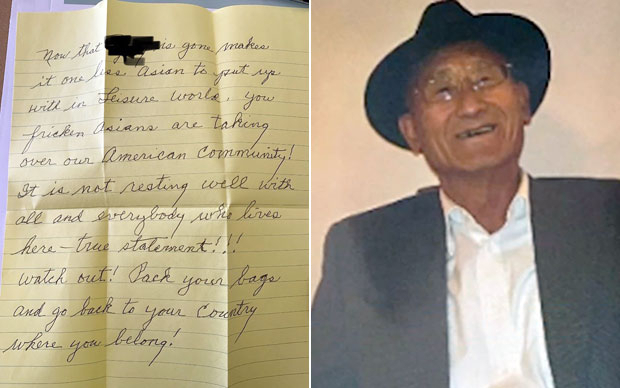 Now that s gone makes
it one less Asian to put up
with in Leisure World. You
frickin Asians are taking
over our American Community!
It is not resting well with
all and everybody who lives
here-true statement!!!
watch out! Pack your bags
and go back to your Country
where you belong!